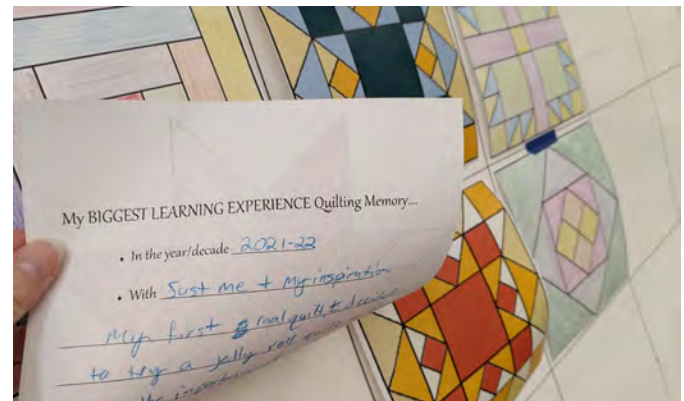 My BIGGEST LEARNING EXPERIENCE Quilting Memory....
• In the year/decade 2021-22
• With Just me + my inspiration
My first real quilt, to
to try a jelly roll